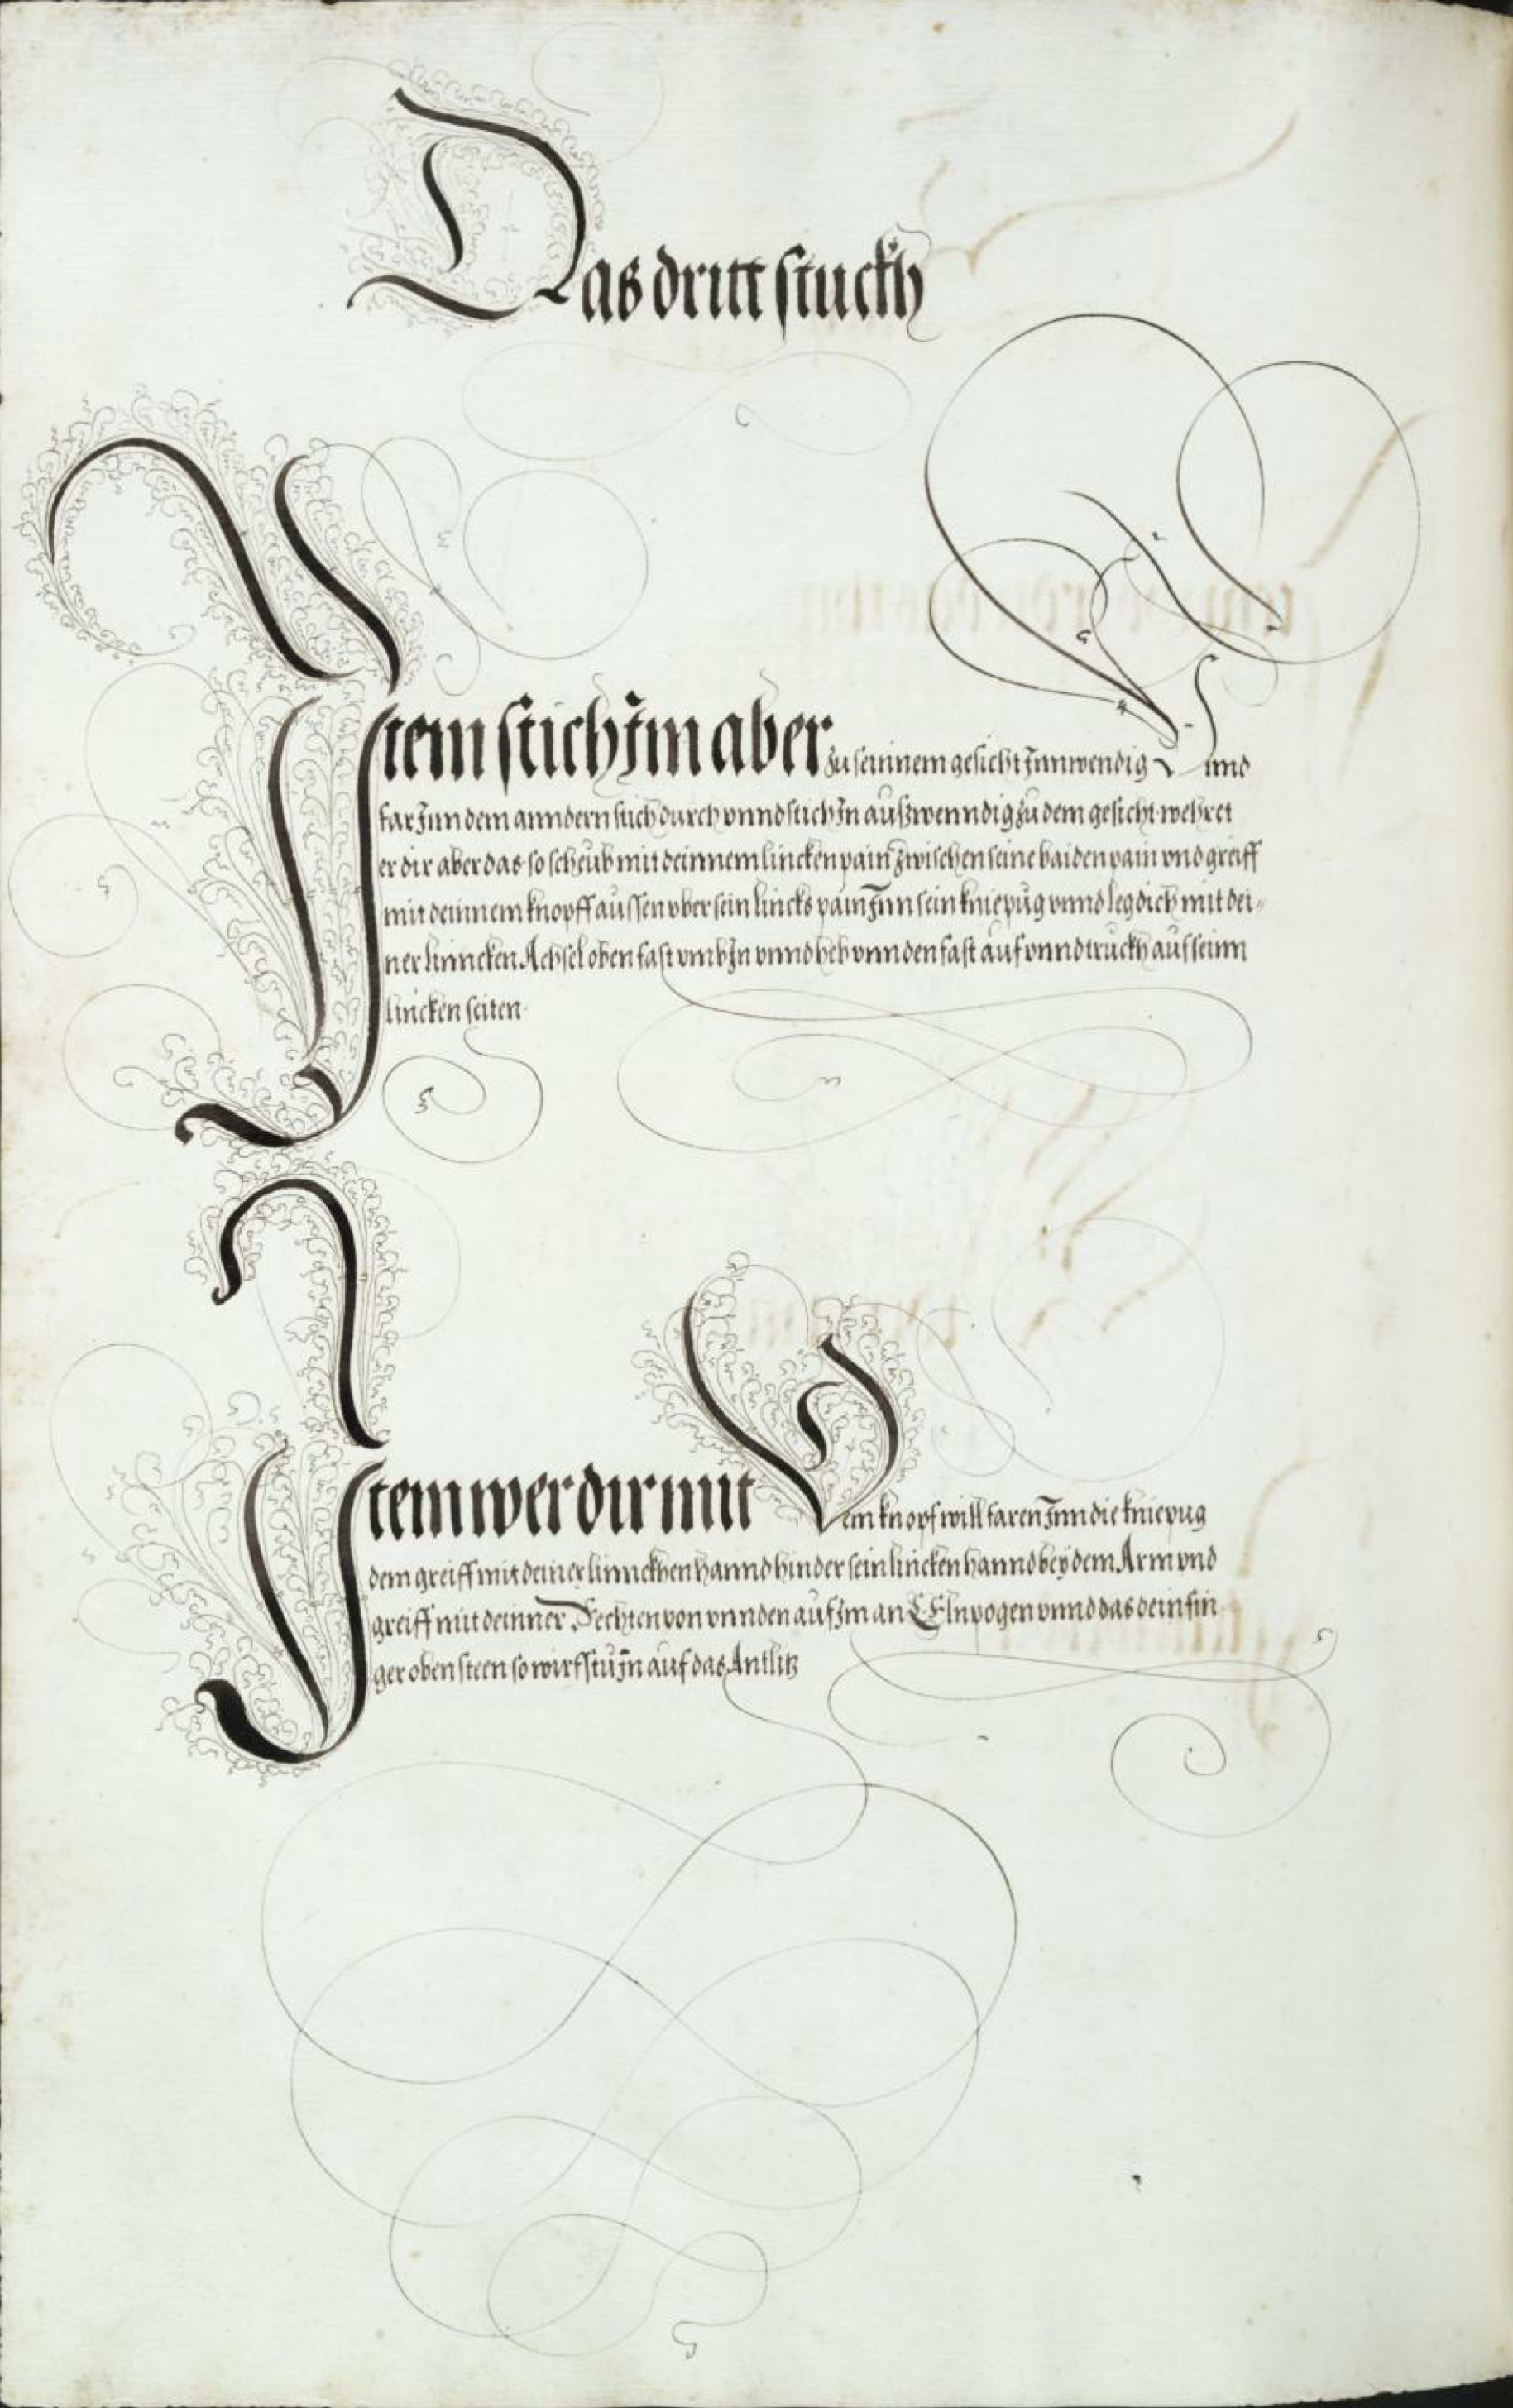 Das dritt stuckh
Item stich Im aber zu seinnem gesicht Innwendig Unnd
far Inn dem anndern stich durch vnnd stich In auszwenndig zu dem gesicht wehret
er dir aber das so scheub mit deinnem lincken pain zwischen seine baiden pain vnd greiff
mit deinnem knopff aussen vber sein lincks pain Inn sein kniepüg vnnd leg dich mit dei-
ner linncken Achsel oben fast vmb In vnnd heb vnnden fast auf vnnd truckh auf seinn
lincken seiten
Item wer dir mit Dem knopf will faren Inn die kniepug
dem greiff mit deiner linnckhen hannd hinder sein lincken hannd bey dem Arm vnd
greiff mit deinner Rechten von vnnden auf Im an Elnpogen vnnd das dein fin
ger oben steen so wirfstu In auf das Antlitz